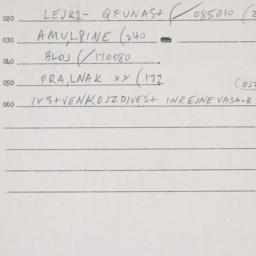 020 LEJK2- QFUNAS+ (/085010 (2
030 AMUL8INE (240
040 BLOJ (/170080
050 PRA,LNAK XX (172
060 IVS+VENKOJZDIVES+ INREJNEVASA-R